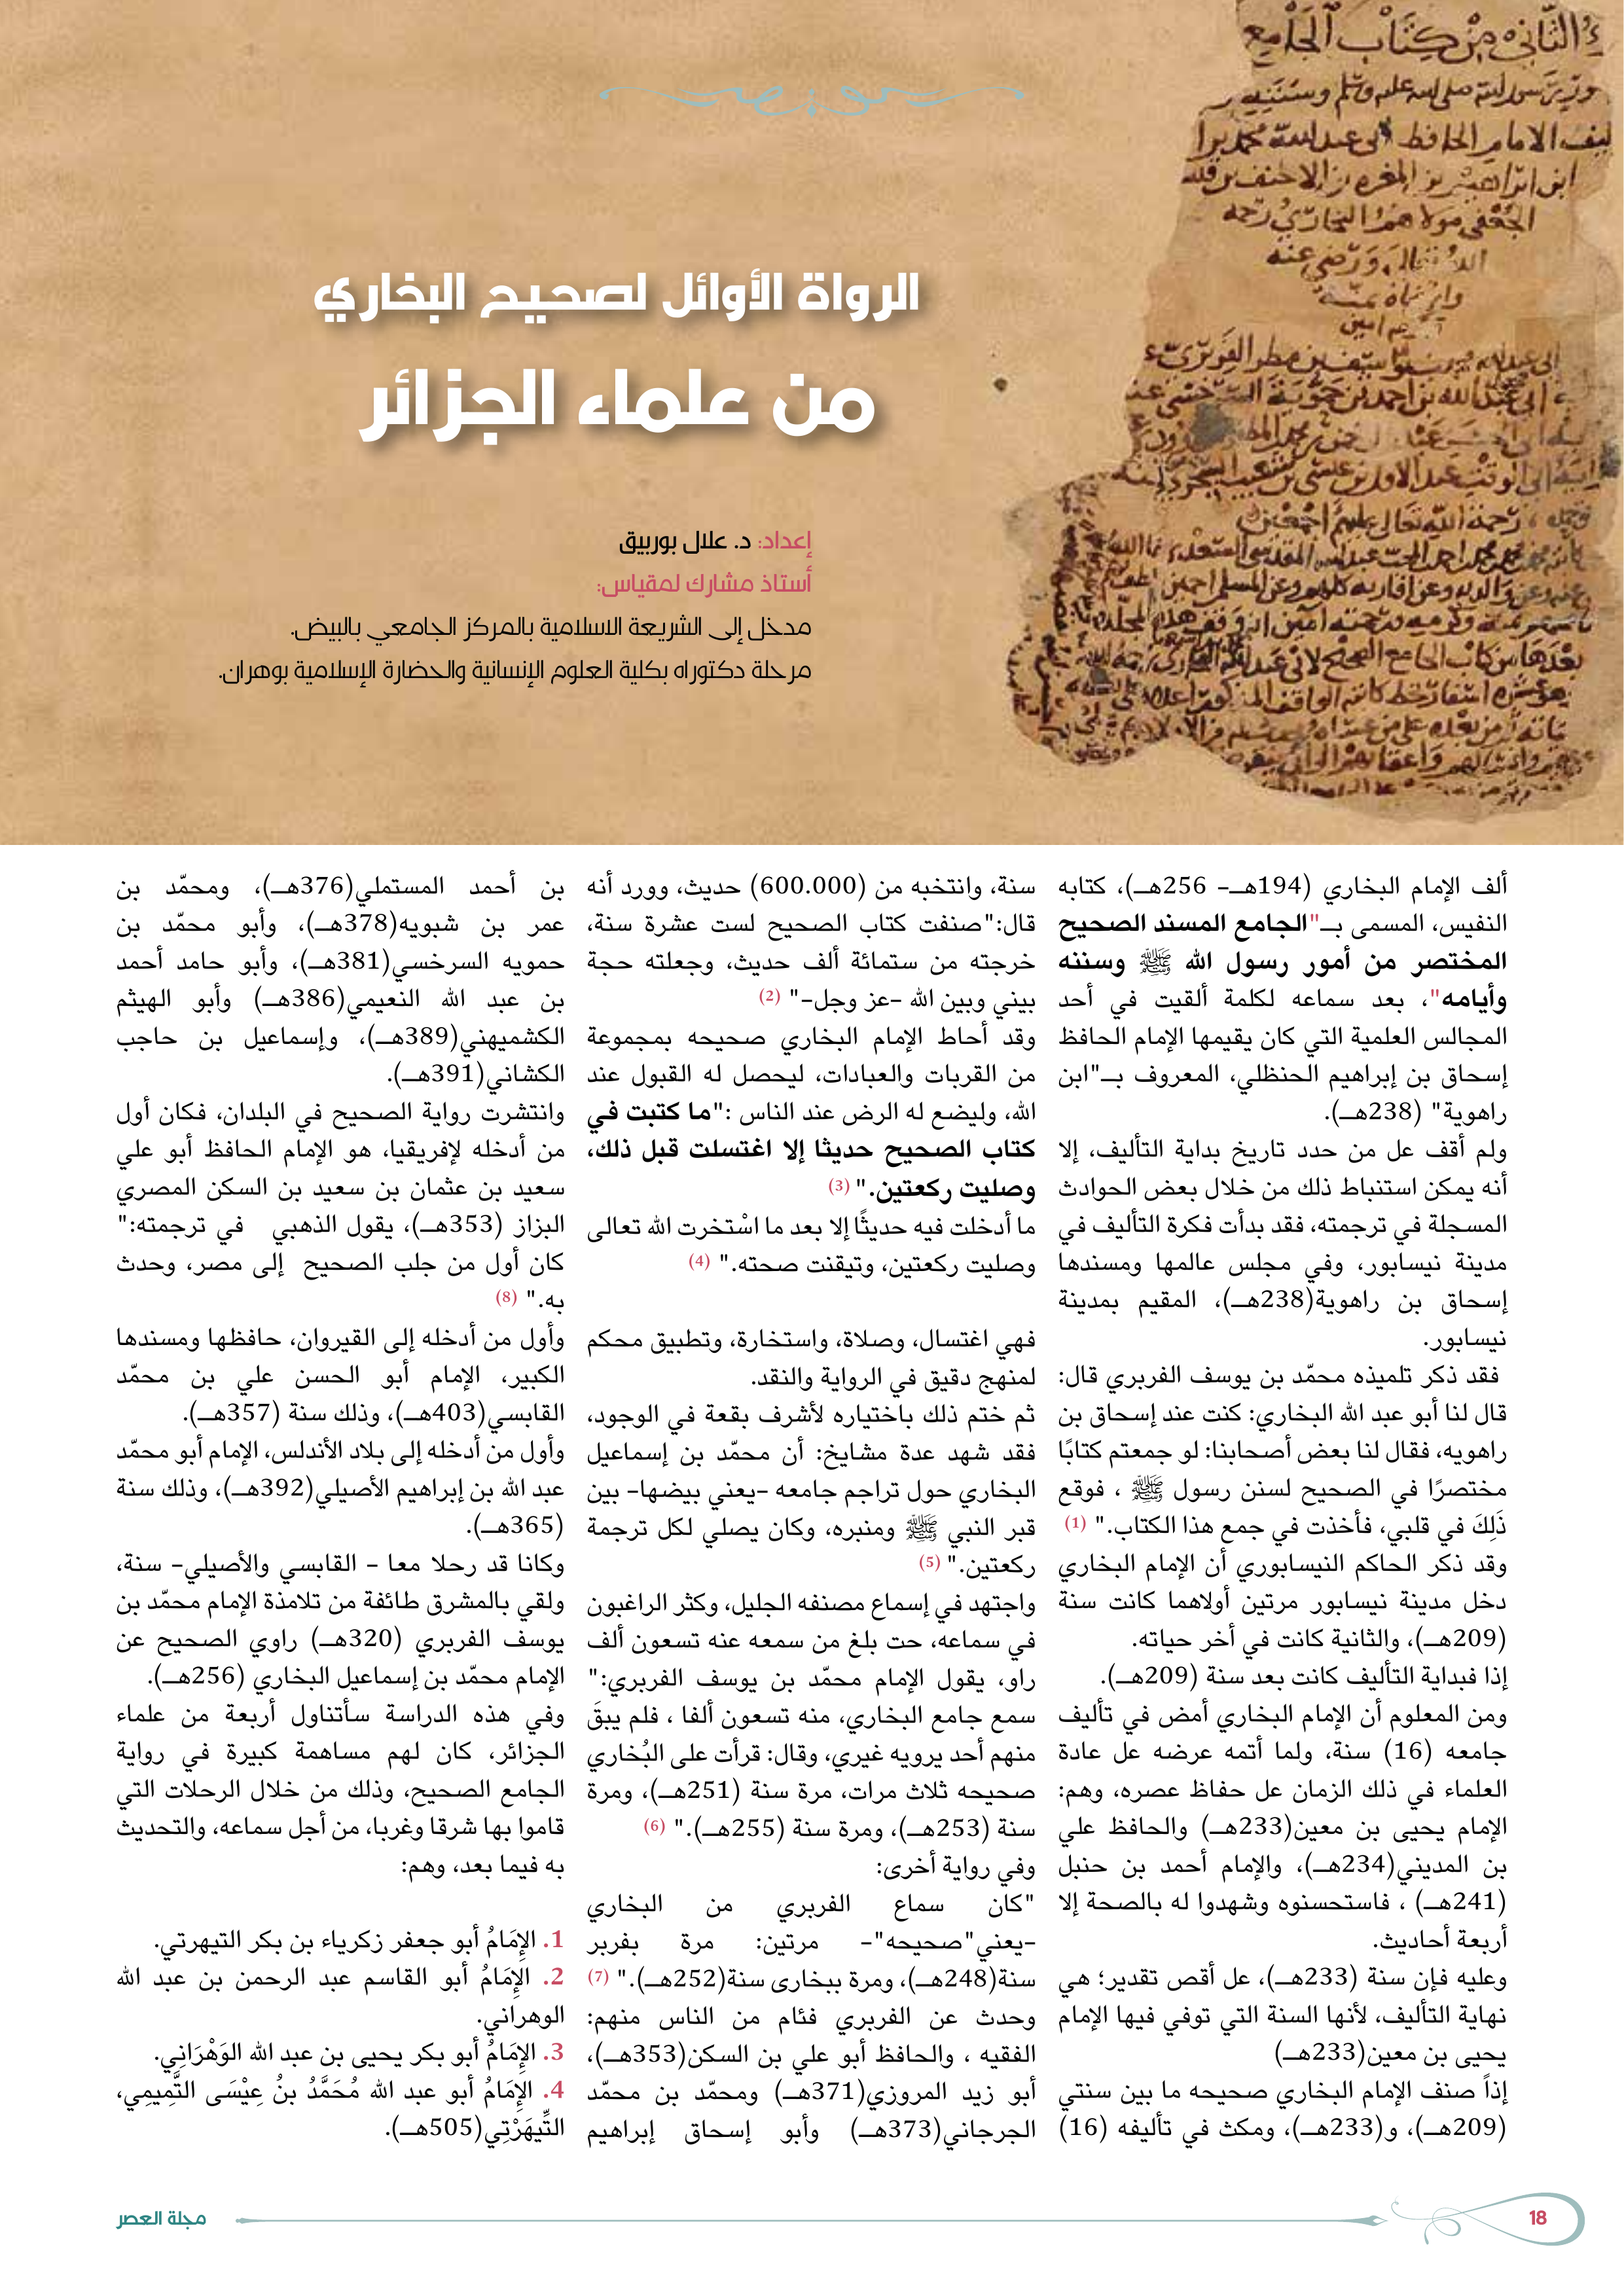 الرواة الأوائل لصحيح البخاري
من علماء الجزائر
إعداد: د. علال بوربيق
أستاذ مشارك لمقياس:
مدخل إلى الشريعة الاسلامية بالمركز الجامعي بالبيض.
مرحلة دكتوراه بكلية العلوم الإنسانية والحضارة الإسلامية بوهران.
ألف الإمام البخاري (194هـ- 256هـ)، كتابه
النفيس، المسمى بـ"الجامع المسند الصحيح
المختصر من أمور رسول الله ﷺ وسننه
وأيامه"، بعد سماعه لكلمة ألقيت في أحد
المجالس العلمية التي كان يقيمها الإمام الحافظ
إسحاق بن إبراهيم الحنظلي، المعروف بـ"ابن
راهوية" (238هـ).
ولم أقف عل من حدد تاريخ بداية التأليف، إلا
أنه يمكن استنباط ذلك من خلال بعض الحوادث
المسجلة في ترجمته، فقد بدأت فكرة التأليف في
مدينة نيسابور، وفي مجلس عالمها ومسندها
إسحاق بن راهوية(238هـ)، المقيم بمدينة
نيسابور.
فقد ذكر تلميذه محمّد بن يوسف الفربري قال:
قال لنا أبو عبد الله البخاري: كنت عند إسحاق بن
راهويه، فقال لنا بعض أصحابنا: لو جمعتم كتابًا
مختصرًا في الصحيح لسنن رسول ﷺ ، فوقع
ذَلِكَ في قلبي، فأخذت في جمع هذا الكتاب." (1)
وقد ذكر الحاكم النيسابوري أن الإمام البخاري
دخل مدينة نيسابور مرتين أولاهما كانت سنة
(209هـ)، والثانية كانت في أخر حياته.
إذا فبداية التأليف كانت بعد سنة (209هـ).
ومن المعلوم أن الإمام البخاري أمض في تأليف
جامعه (16) سنة، ولما أتمه عرضه عل عادة
العلماء في ذلك الزمان عل حفاظ عصره، وهم:
الإمام يحيى بن معين(233هـ) والحافظ علي
بن المديني(234هـ)، والإمام أحمد بن حنبل
(241هـ) ، فاستحسنوه وشهدوا له بالصحة إلا
أربعة أحاديث.
وعليه فإن سنة (233هـ)، عل أقص تقدير؛ هي
نهاية التأليف، لأنها السنة التي توفي فيها الإمام
يحيى بن معين(233هـ)
إذاً صنف الإمام البخاري صحيحه ما بين سنتي
(209هـ)، و(233هـ)، ومكث في تأليفه (16)
سنة، وانتخبه من (600.000) حديث، وورد أنه
قال:"صنفت كتاب الصحيح لست عشرة سنة،
خرجته من ستمائة ألف حديث، وجعلته حجة
بيني وبين الله -عز وجل-" (2)
وقد أحاط الإمام البخاري صحيحه بمجموعة
من القربات والعبادات، ليحصل له القبول عند
الله، وليضع له الرض عند الناس :"ما كتبت في
كتاب الصحيح حديثا إلا اغتسلت قبل ذلك،
وصليت ركعتين." (3)
ما أدخلت فيه حديثًا إلا بعد ما اسْتخرت الله تعالى
وصليت ركعتين، وتيقنت صحته." (4)
فهي اغتسال، وصلاة، واستخارة، وتطبيق محكم
لمنهج دقيق في الرواية والنقد.
ثم ختم ذلك باختياره لأشرف بقعة في الوجود،
فقد شهد عدة مشايخ: أن محمّد بن إسماعيل
البخاري حول تراجم جامعه -يعني بيضها- بين
قبر النبي ﷺ ومنبره، وكان يصلي لكل ترجمة
ركعتين." (5)
واجتهد في إسماع مصنفه الجليل، وكثر الراغبون
في سماعه، حت بلغ من سمعه عنه تسعون ألف
راو، يقول الإمام محمّد بن يوسف الفربري:"
سمع جامع البخاري، منه تسعون ألفا ، فلم يبقَ
منهم أحد يرويه غيري، وقال: قرأت على البُخاري
صحيحه ثلاث مرات، مرة سنة (251هـ)، ومرة
سنة (253هـ)، ومرة سنة (255هـ)." (6)
وفي رواية أخرى:
"كان سماع الفربري من البخاري
-يعني"صحيحه"- مرتين: مرة بفربر
سنة(248هـ)، ومرة ببخارى سنة(252هـ)." (7)
وحدث عن الفربري فئام من الناس منهم:
الفقيه ، والحافظ أبو علي بن السكن(353هـ)،
أبو زيد المروزي(371هـ) ومحمّد بن محمّد
الجرجاني(373هـ) وأبو إسحاق إبراهيم
بن أحمد المستملي(376هـ)، ومحمّد بن
عمر بن شبويه(378هـ)، وأبو محمّد بن
حمويه السرخسي(381هـ)، وأبو حامد أحمد
بن عبد الله النعيمي(386هـ) وأبو الهيثم
الكشميهني(389هـ)، وإسماعيل بن حاجب
الكشاني(391هـ).
وانتشرت رواية الصحيح في البلدان، فكان أول
من أدخله لإفريقيا، هو الإمام الحافظ أبو علي
سعيد بن عثمان بن سعيد بن السكن المصري
البزاز (353هـ)، يقول الذهبي في ترجمته:"
كان أول من جلب الصحيح إلى مصر، وحدث
به." (8)
وأول من أدخله إلى القيروان، حافظها ومسندها
الكبير، الإمام أبو الحسن علي بن محمّد
القابسي(403هـ)، وذلك سنة (357هـ).
وأول من أدخله إلى بلاد الأندلس، الإمام أبو محمّد
عبد الله بن إبراهيم الأصيلي(392هـ)، وذلك سنة
(365هـ).
وكانا قد رحلا معا - القابسي والأصيلي- سنة،
ولقي بالمشرق طائفة من تلامذة الإمام محمّد بن
يوسف الفربري (320هـ) راوي الصحيح عن
الإمام محمّد بن إسماعيل البخاري (256هـ).
وفي هذه الدراسة سأتناول أربعة من علماء
الجزائر، كان لهم مساهمة كبيرة في رواية
الجامع الصحيح، وذلك من خلال الرحلات التي
قاموا بها شرقا وغربا، من أجل سماعه، والتحديث
به فيما بعد، وهم:
1. الإِمَامُ أبو جعفر زكرياء بن بكر التيهرتي.
2. الإِمَامُ أبو القاسم عبد الرحمن بن عبد الله
الوهراني.
3. الإِمَامُ أبو بكر يحيى بن عبد الله الوَهْرَانِي.
4. الإِمَامُ أبو عبد الله مُحَمَّدُ بنُ عِيْسَى التَّمِيمِي،
التِّيهَرْتِي(505هـ).
مجلة العصر
18